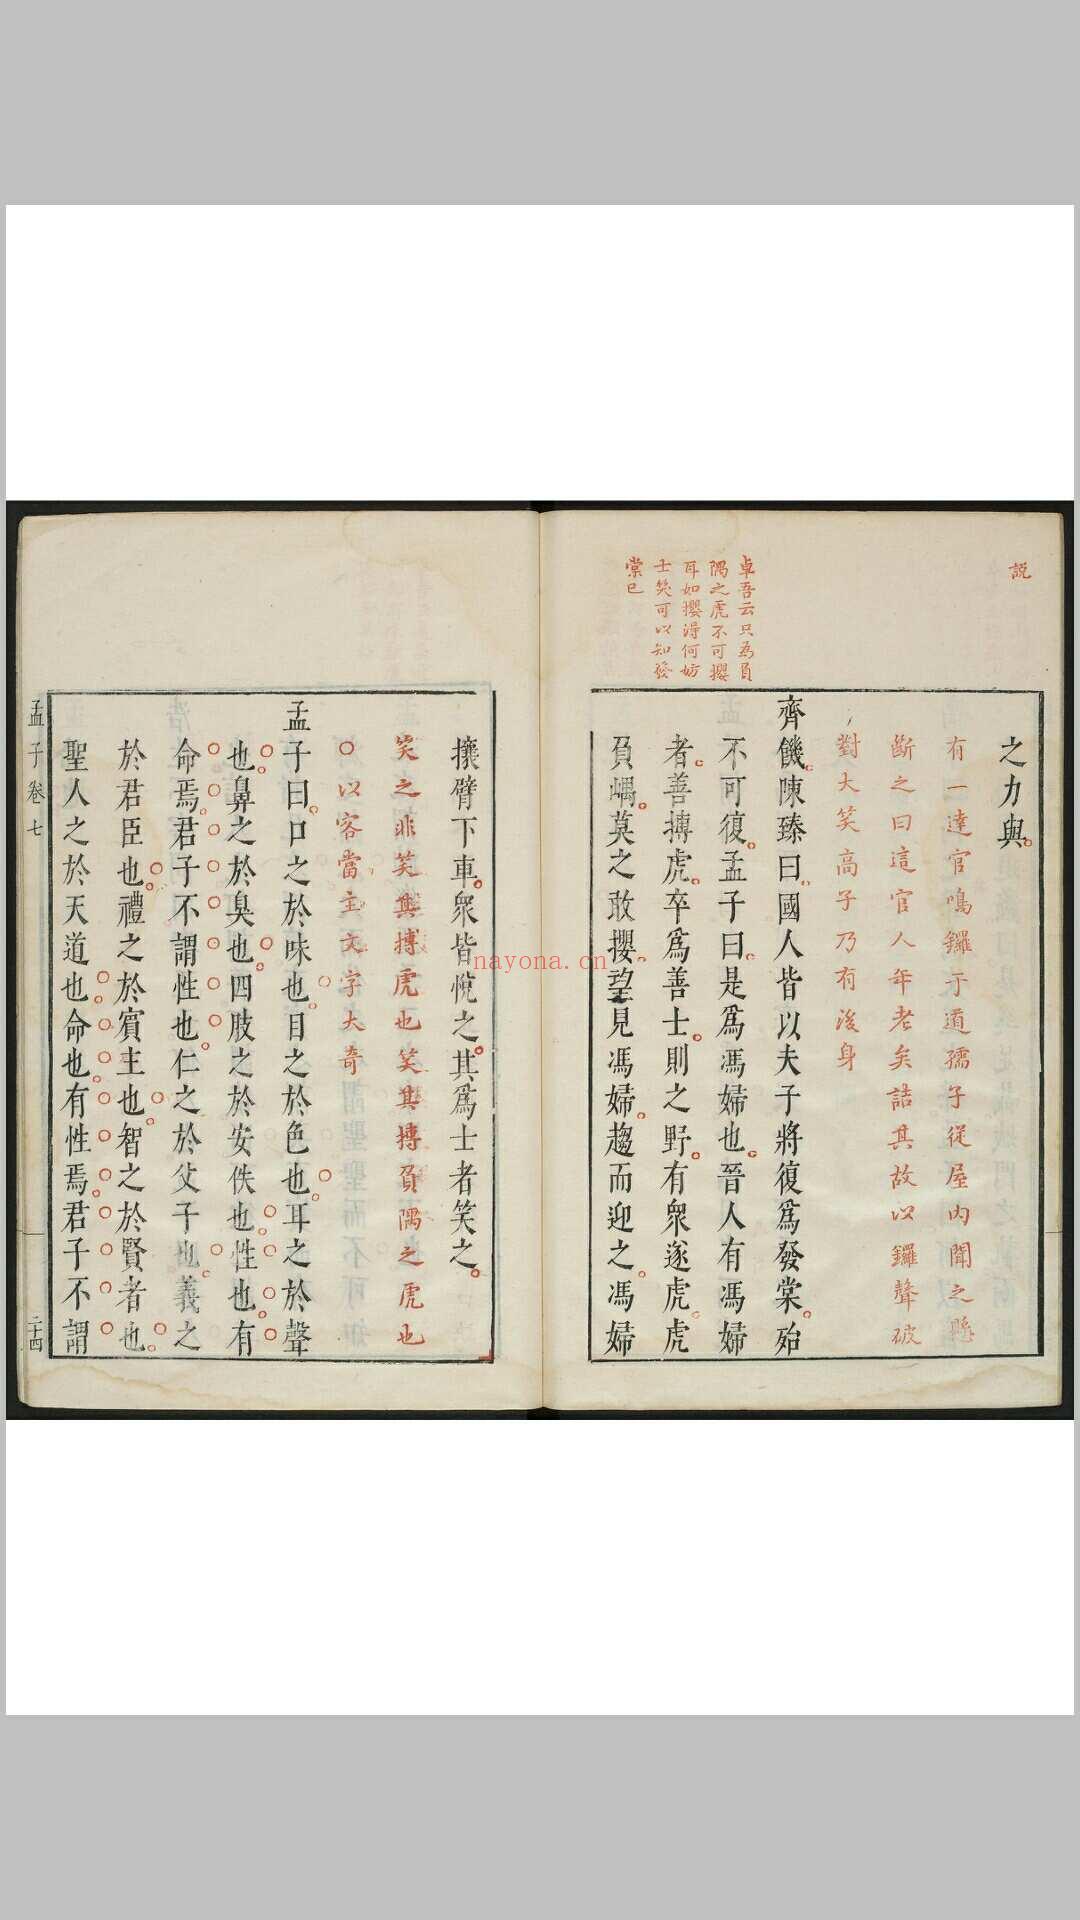 説
之力與
有一達官鳴鑼于道孺子從屋內聞之懸
斷之曰這官人年老矣詰其故以鑼聲破
對大笑高子乃有後身
卓吾云只為負
隅之虎不可攖
耳如攖得何妨
士笑可以知發
棠已
齊饑陳臻曰國人皆以夫子將復爲發棠殆
不可復孟子曰是爲馮婦也晉人有馮婦
者善搏虎卒爲善士則之野有衆逐虎虎
負嵎莫之敢攖望見馮婦趨而迎之馮婦
攘臂下車衆皆悅之其爲士者笑之
笑之非笑其搏虎也笑其搏負隅之虎也
以客當主文字大奇
孟子曰口之於味也目之於色也耳之於聲
也鼻之於臭也四肢之於安佚也性也有
命焉君子不謂性也仁之於父子也義之
於君臣也禮之於賓主也智之於賢者也
聖人之於天道也命也有性焉君子不謂
孟子卷七
二十四
nayona.cn